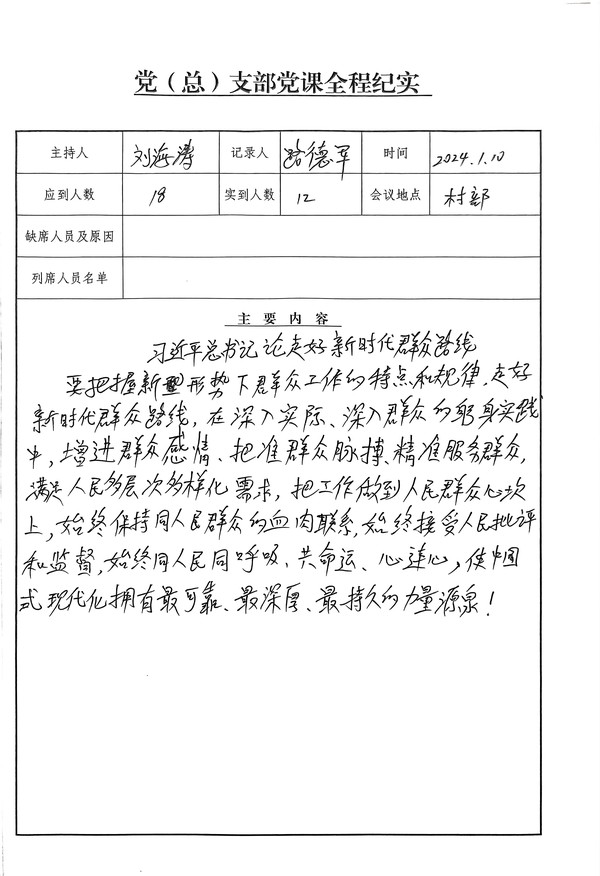 党（总）支部党课全程纪实
主持人 刘海涛 记录人 路德军 时间 2024.1.10
应到人数 18 实到人数 12 会议地点 村部
缺席人员及原因
列席人员名单
主要内容
习近平总书记论走好新时代群众路线
要把握新型形势下群众工作的特点和规律，走好
新时代群众路线，在深入实际、深入群众的躬身实践
中，增进群众感情、把准群众脉搏、精准服务群众，
满足人民多层次多样化需求，把工作做到人民群众心坎
上，始终保持同人民群众的血肉联系，始终接受人民批评
和监督，始终同人民同呼吸、共命运、心连心，使中国
式现代化拥有最可靠、最深厚、最持久的力量源泉！